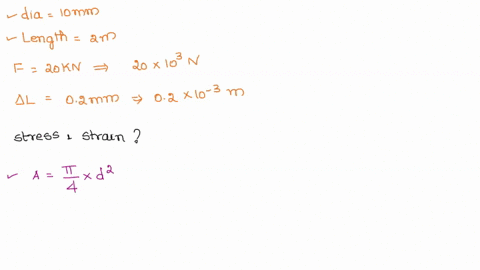 ✓ dia = 10mm
✓ Length = 2m
F = 20KN ⇒ 20 × 10³ N
ΔL = 0.2mm ⇒ 0.2 × 10⁻³ m
stress & strain ?
✓ A = π/4 × d²